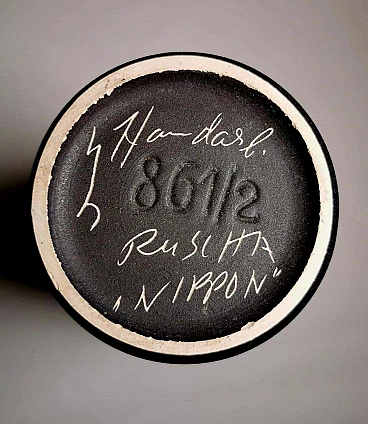 Handarb.
861/2
RUSCHA
„NIPPON"